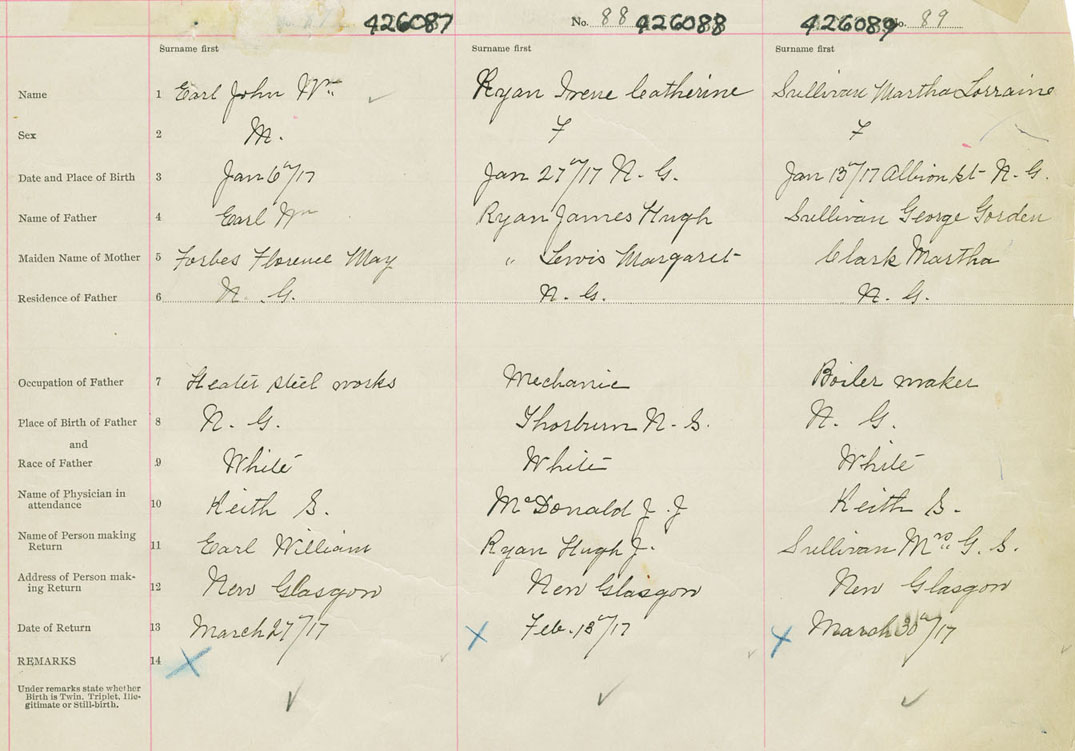 426087 No. 88 426088 426089 No. 89
Surname first Surname first Surname first
Name 1 Earl John Wm Ryan Irene Catherine Sullivan Martha Lorraine
Sex 2 M. F F
Date and Place of Birth 3 Jan 6th/17 Jan 27th/17 N. G. Jan 13th/17 Albion st N. G.
Name of Father 4 Earl Wm Ryan James Hugh Sullivan George Gorden
Maiden Name of Mother 5 Forbes Florence May " Lewis Margaret Clark Martha
Residence of Father 6 N. G. N. G. N. G.
Occupation of Father 7 Heater steel works Mechanic Boiler maker
Place of Birth of Father 8 N. G. Thorburn N. S. N. G.
and
Race of Father 9 White White White
Name of Physician in
attendance 10 Keith S. McDonald J. J Keith S.
Name of Person making
Return 11 Earl William Ryan Hugh J. Sullivan Mrs G. S.
Address of Person mak-
ing Return 12 New Glasgow New Glasgow New Glasgow
Date of Return 13 March 27th/17 Feb. 13th/17 March 30th/17
REMARKS 14
Under remarks state whether
Birth is Twin, Triplet, Ille-
gitimate or Still-birth.